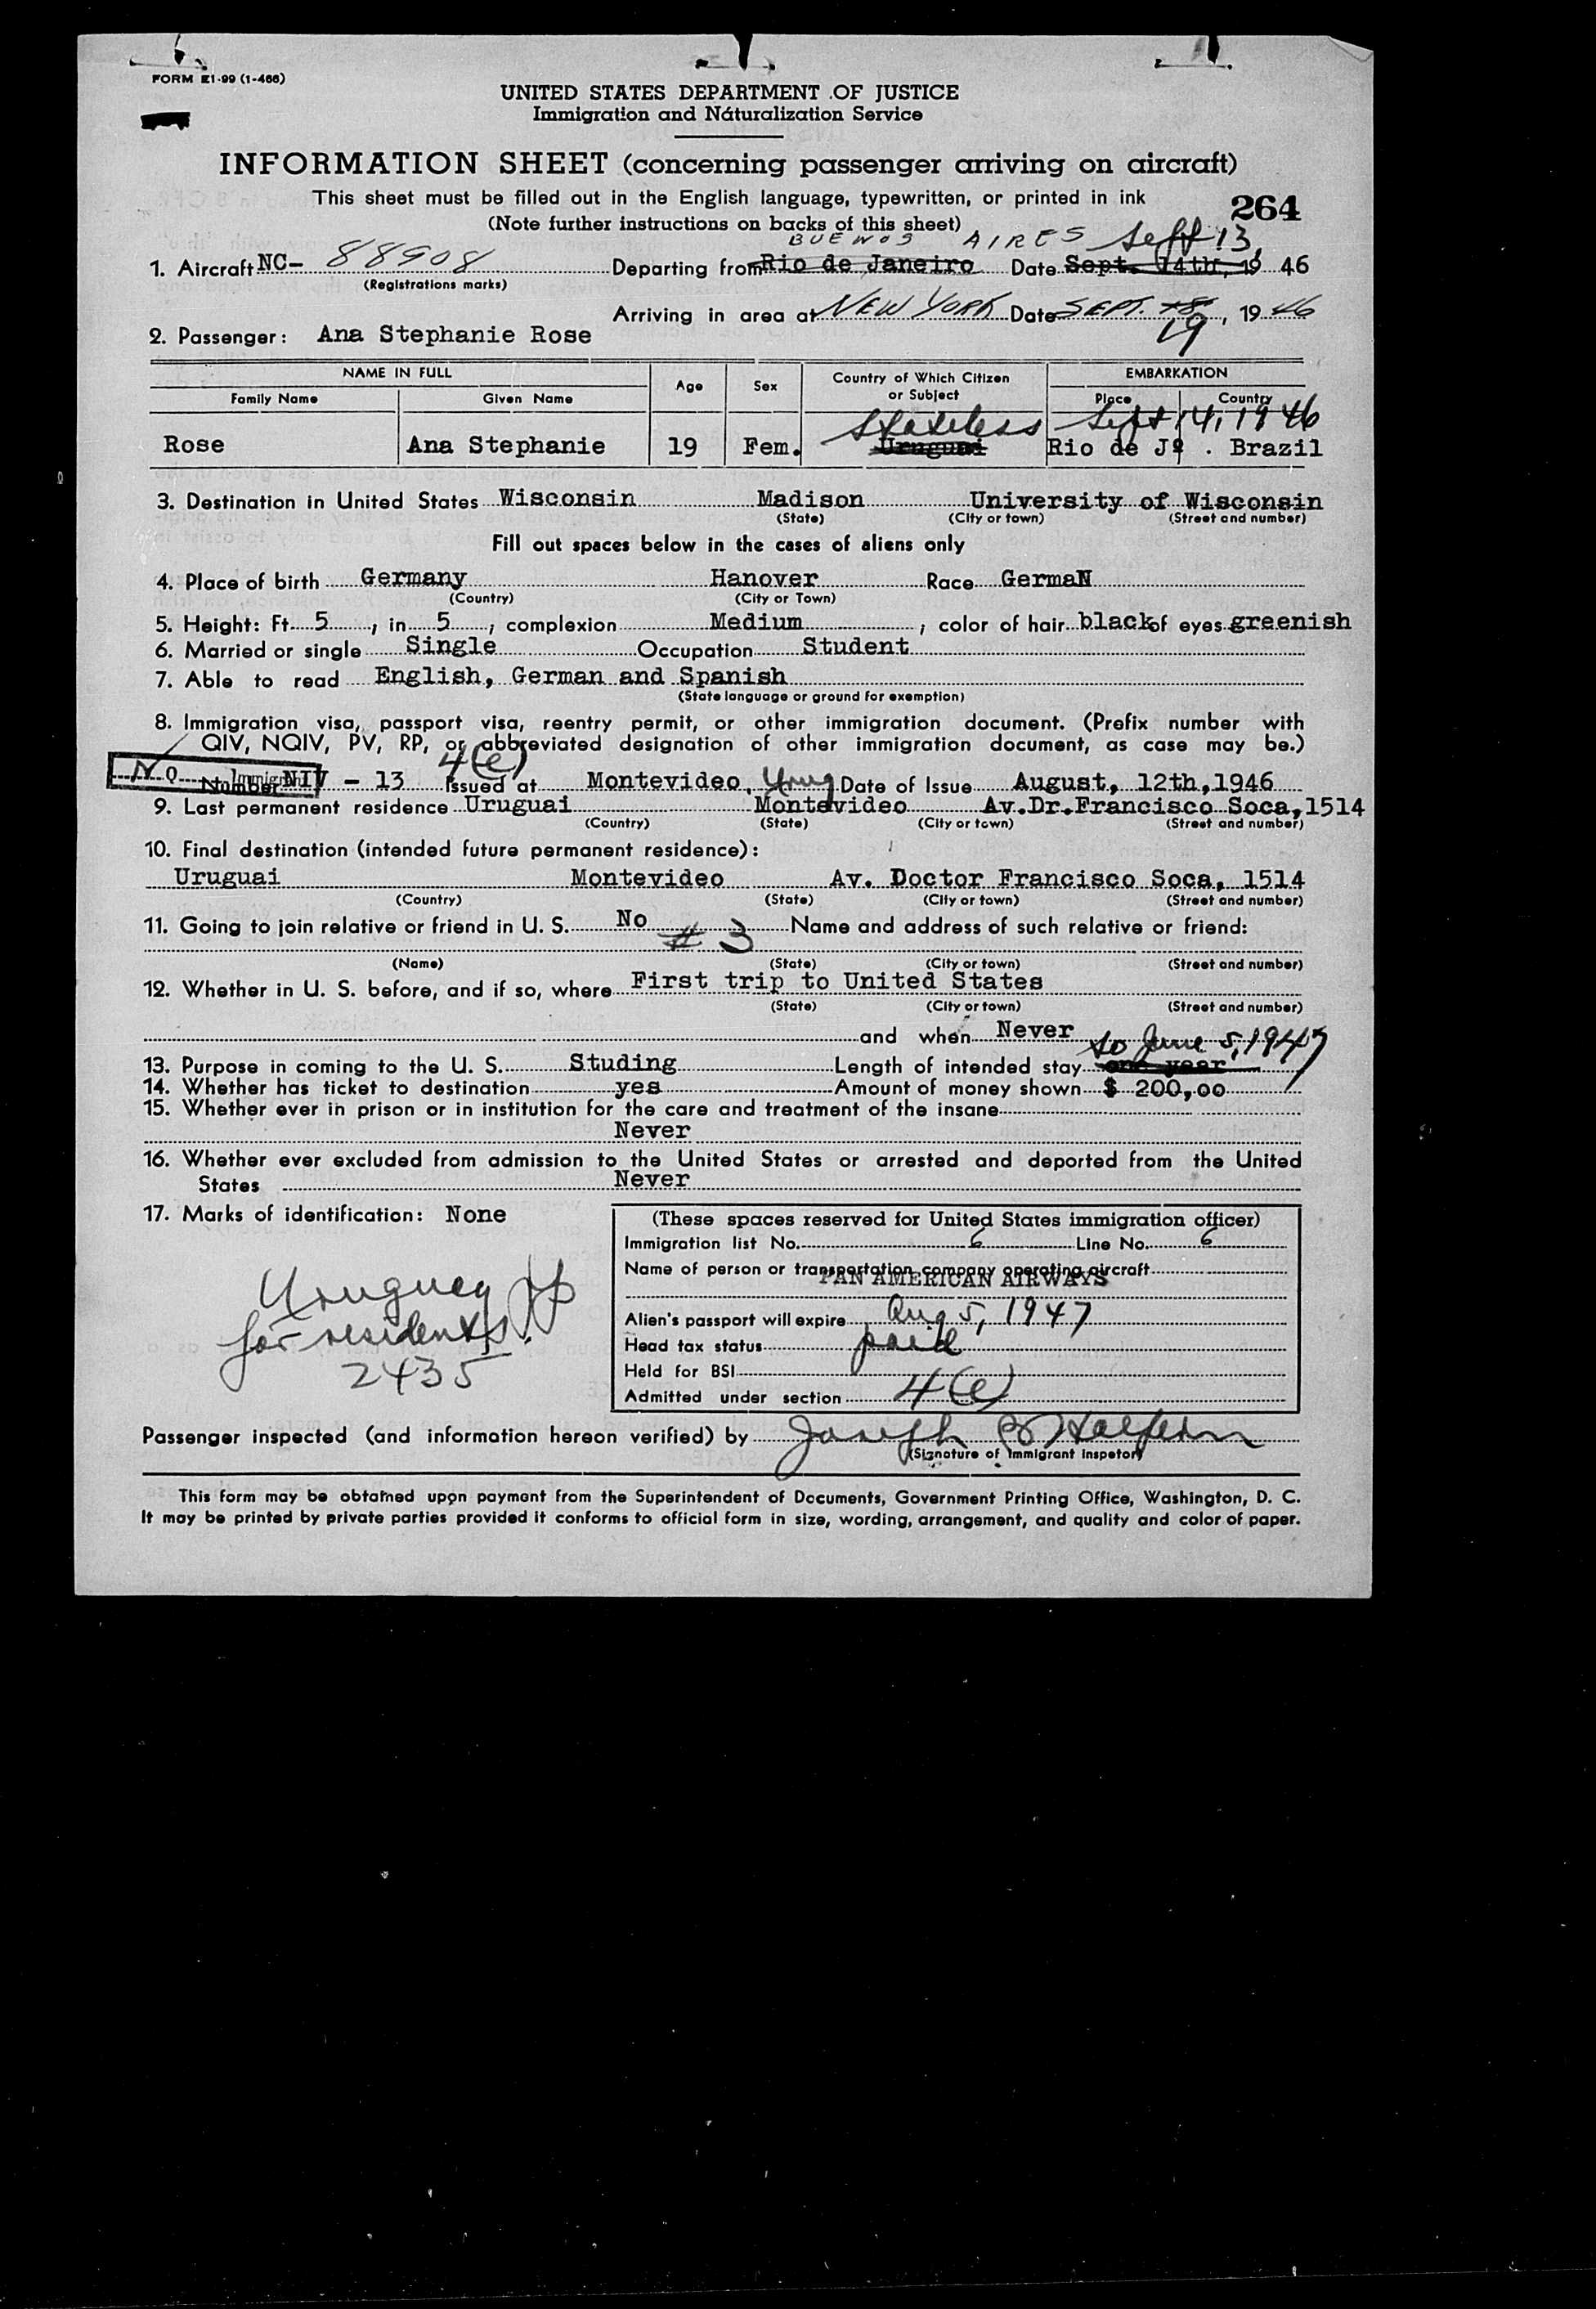 FORM I-99 (1-466)
UNITED STATES DEPARTMENT OF JUSTICE
Immigration and Naturalization Service
INFORMATION SHEET (concerning passenger arriving on aircraft)
This sheet must be filled out in the English language, typewritten, or printed in ink
264
(Note further instructions on backs of this sheet)
BUENOS AIRES Sept 13,
1. Aircraft NC- 88908 Departing from Rio de Janeiro Date Sept. 14th, 19 46
(Registrations marks)
Arriving in area at NEW YORK Date SEPT. 18 19, 19 46
2. Passenger: Ana Stephanie Rose
NAME IN FULL Age Sex Country of Which Citizen or Subject EMBARKATION
Family Name Given Name Place Country
Stateless Sept 14, 1946
Rose Ana Stephanie 19 Fem. Uruguai Rio de Jº . Brazil
3. Destination in United States Wisconsin Madison University of Wisconsin
(State) (City or town) (Street and number)
Fill out spaces below in the cases of aliens only
4. Place of birth Germany Hanover Race GermaN
(Country) (City or Town)
5. Height: Ft. 5, in 5; complexion Medium; color of hair black of eyes greenish
6. Married or single Single Occupation Student
7. Able to read English, German and Spanish
(State language or ground for exemption)
8. Immigration visa, passport visa, reentry permit, or other immigration document. (Prefix number with
QIV, NQIV, PV, RP, or abbreviated designation of other immigration document, as case may be.)
4(e)
N Q Immigrant
Number NIV - 13 Issued at Montevideo, Urug Date of Issue August, 12th, 1946
9. Last permanent residence Uruguai Montevideo Av.Dr.Francisco Soca, 1514
(Country) (State) (City or town) (Street and number)
10. Final destination (intended future permanent residence):
Uruguai Montevideo Av. Doctor Francisco Soca, 1514
(Country) (State) (City or town) (Street and number)
11. Going to join relative or friend in U. S. No # 3 Name and address of such relative or friend:
(Name) (State) (City or town) (Street and number)
12. Whether in U. S. before, and if so, where First trip to United States
(State) (City or town) (Street and number)
and when Never to June 5, 1947
13. Purpose in coming to the U. S. Studing Length of intended stay one year
14. Whether has ticket to destination yes Amount of money shown $ 200,00
15. Whether ever in prison or in institution for the care and treatment of the insane
Never
16. Whether ever excluded from admission to the United States or arrested and deported from the United
States Never
17. Marks of identification: None
(These spaces reserved for United States immigration officer)
Immigration list No. 6 Line No. 6
Name of person or transportation company operating aircraft
PAN AMERICAN AIRWAYS
Uruguay pp
for residents
2435
Alien's passport will expire Aug 5, 1947
Head tax status paid
Held for BSI
Admitted under section 4(e)
Passenger inspected (and information hereon verified) by Joseph B Halpern
(Signature of Immigrant Inspector)
This form may be obtained upon payment from the Superintendent of Documents, Government Printing Office, Washington, D. C.
It may be printed by private parties provided it conforms to official form in size, wording, arrangement, and quality and color of paper.